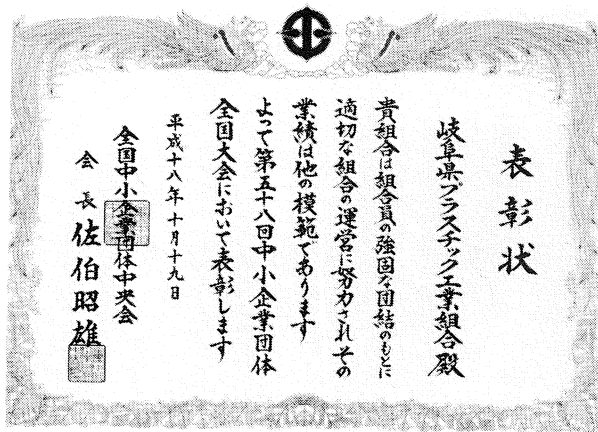 表彰状
岐阜県プラスチック工業組合殿
貴組合は組合員の強固な団結のもとに
適切な組合の運営に努力されその
業績は他の模範であります
よって第五十八回中小企業団体
全国大会において表彰します
平成十八年十月十九日
全国中小企業団体中央会
会長 佐伯昭雄